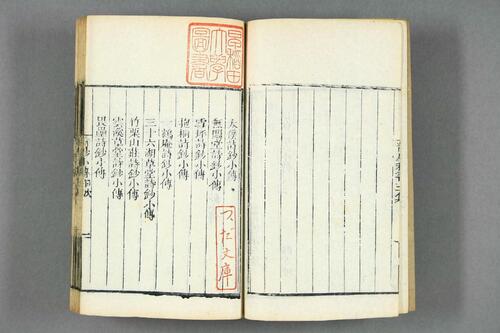 大谷詩鈔小傳
無聞堂詩鈔小傳
雪坪詩鈔小傳
抱桐詩鈔小傳
一鶴庵詩鈔小傳
三十六湖草堂詩鈔小傳
竹栗山莊詩鈔小傳
雲溪草堂詩鈔小傳
畏壘詩鈔小傳
早稻田大學圖書
つだ文庫